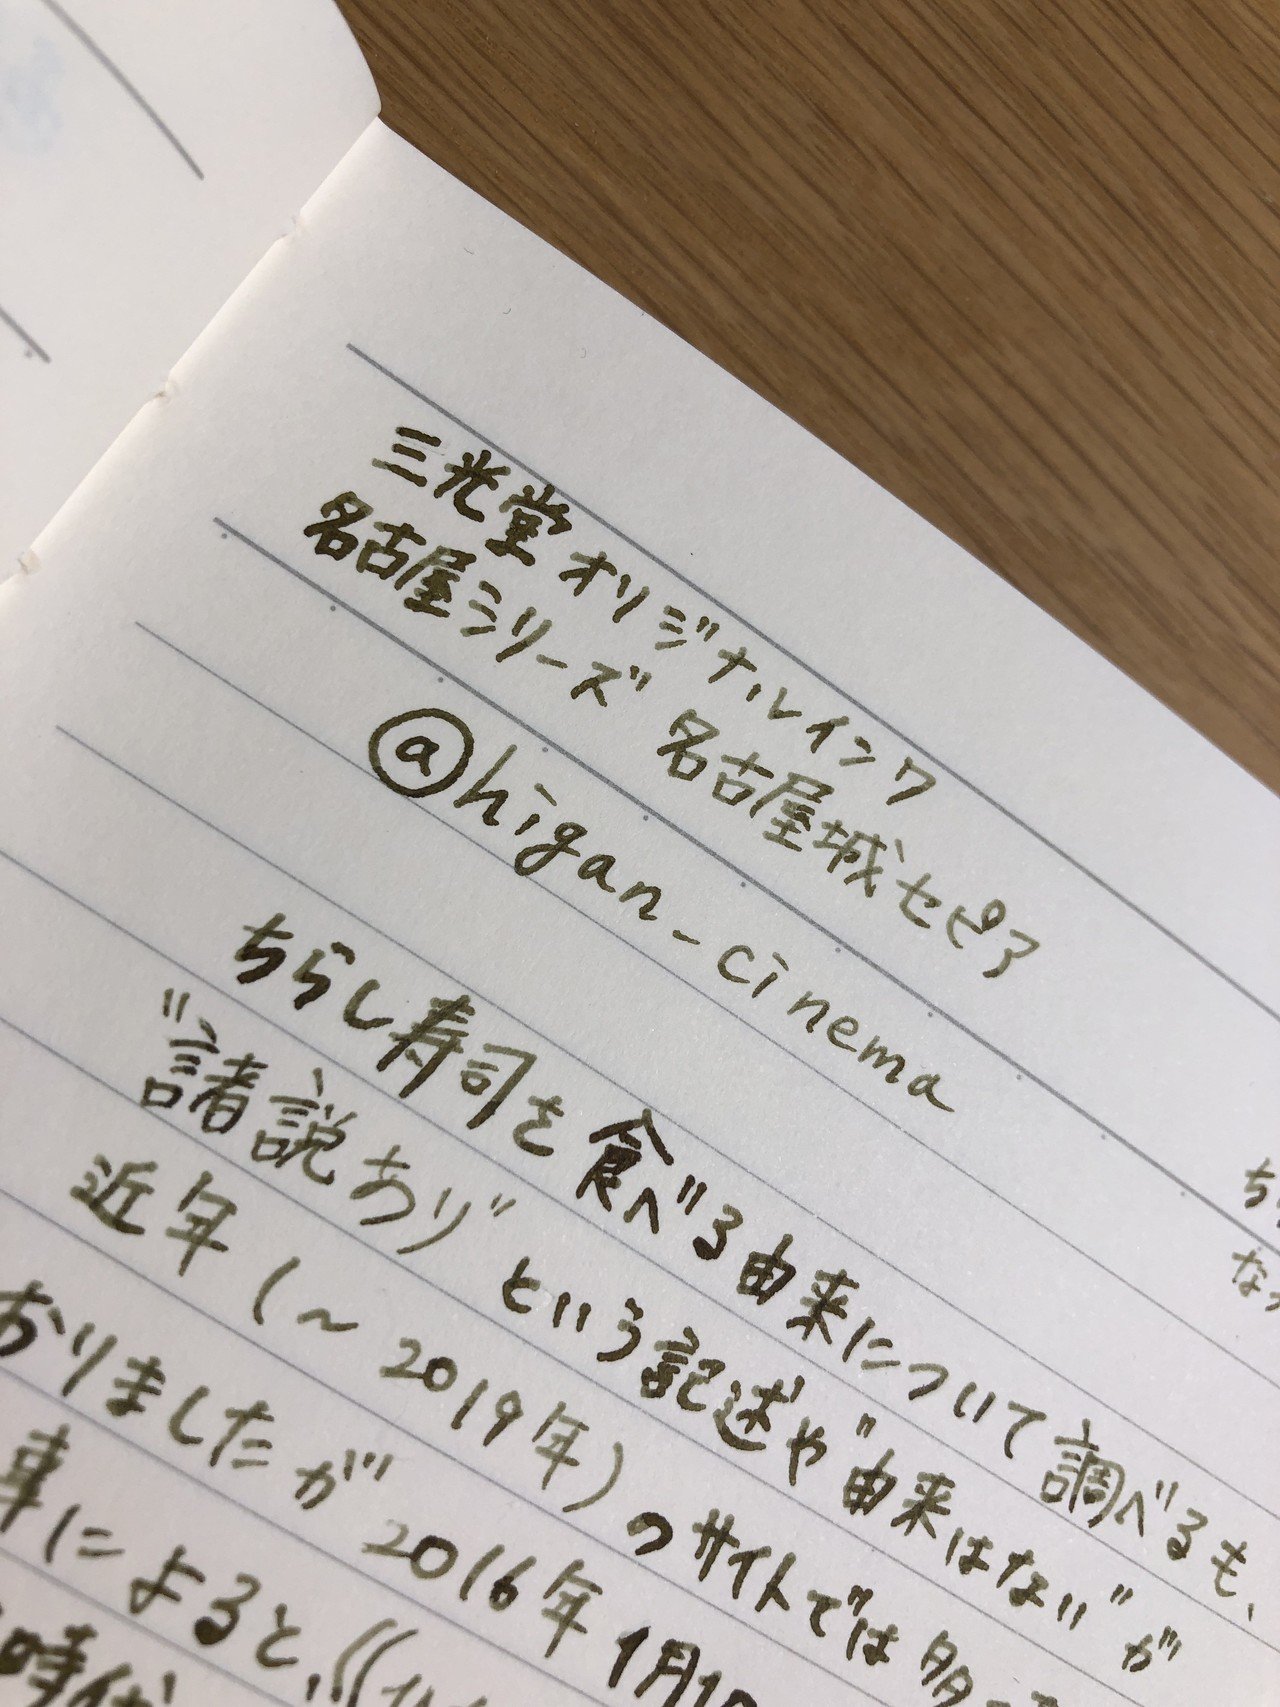 三光堂オリジナルインク
名古屋シリーズ 名古屋城セピア
@higan_cinema
ちらし寿司を食べる由来について調べるも、
"諸説あり" という記述や"由来はない"が
近年(~2019年)のサイトでは多
おりましたが 2016年1月1
事によると、((
時代
ち
な